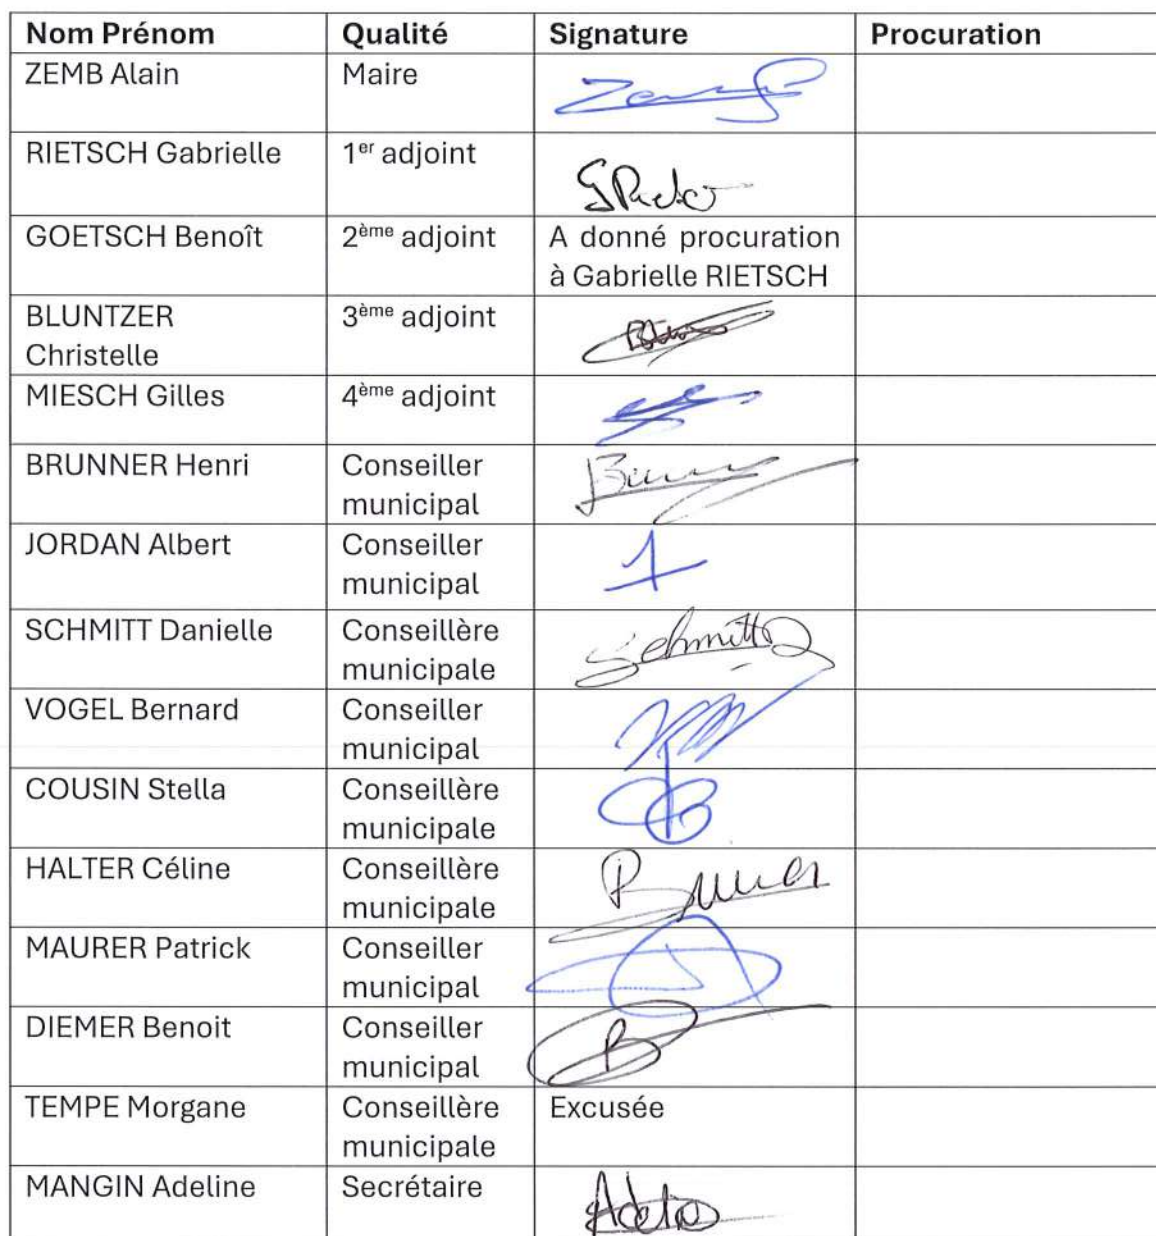 Nom Prénom Qualité Signature Procuration
ZEMB Alain Maire
RIETSCH Gabrielle 1er adjoint
GOETSCH Benoît 2ème adjoint A donné procuration
à Gabrielle RIETSCH
BLUNTZER 3ème adjoint
Christelle
MIESCH Gilles 4ème adjoint
BRUNNER Henri Conseiller
municipal
JORDAN Albert Conseiller
municipal
SCHMITT Danielle Conseillère Schmitt
municipale
VOGEL Bernard Conseiller
municipal
COUSIN Stella Conseillère
municipale
HALTER Céline Conseillère
municipale
MAURER Patrick Conseiller
municipal
DIEMER Benoit Conseiller
municipal
TEMPE Morgane Conseillère Excusée
municipale
MANGIN Adeline Secrétaire